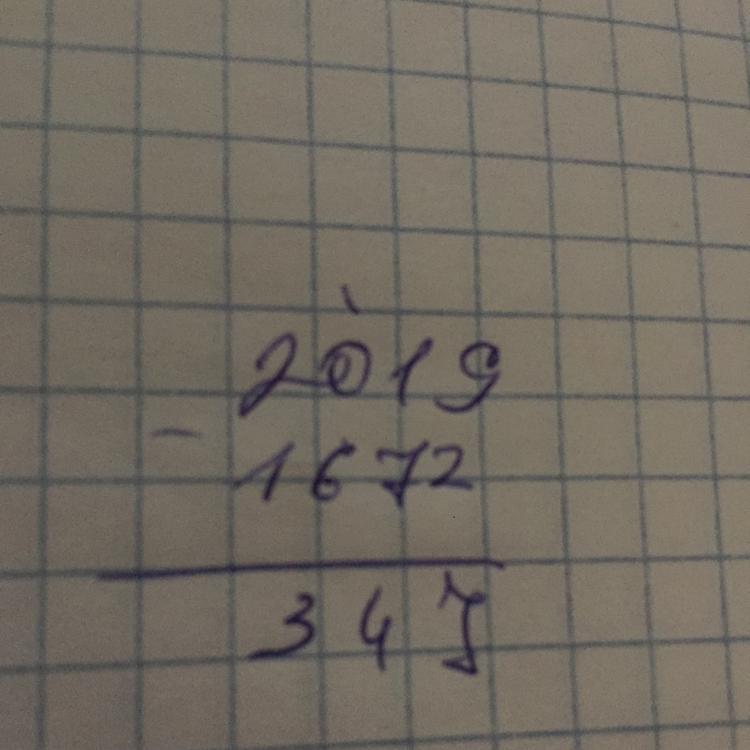 2019
- 1672
347